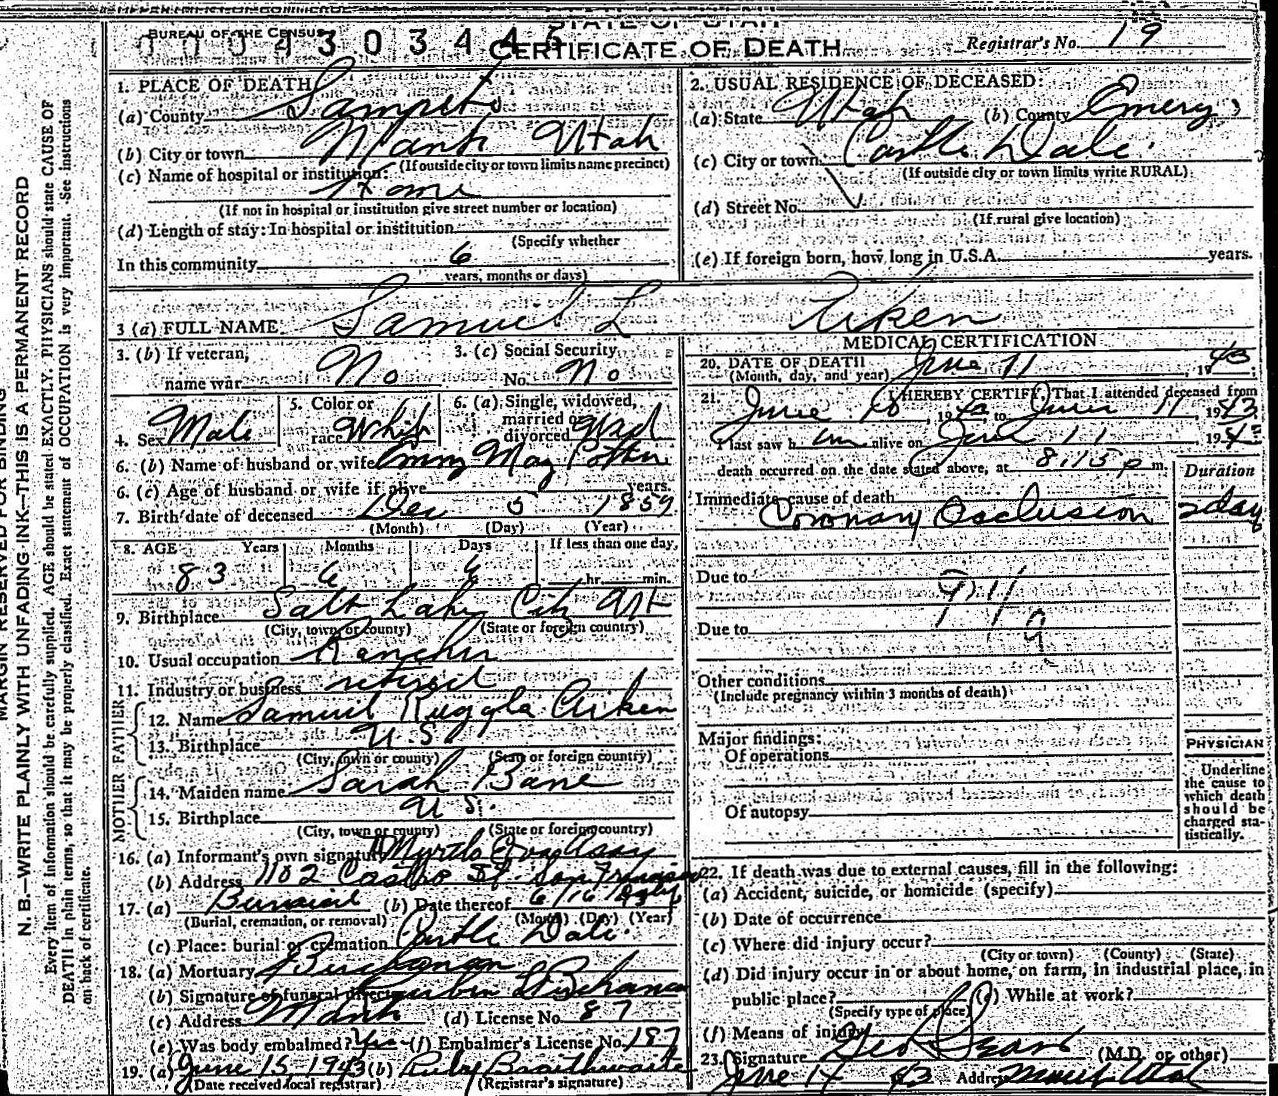 DEPARTMENT OF COMMERCE
STATE OF UTAH
BUREAU OF THE CENSUS
0 0 0 4 3 0 3 4 4 4 5
CERTIFICATE OF DEATH
Registrar's No. 19
MARGIN RESERVED FOR BINDING
N. B.—WRITE PLAINLY WITH UNFADING INK—THIS IS A PERMANENT RECORD
Every item of information should be carefully supplied. AGE should be stated EXACTLY. PHYSICIANS should state CAUSE OF
DEATH in plain terms, so that it may be properly classified. Exact statement of OCCUPATION is very important. See instructions
on back of certificate.
1. PLACE OF DEATH
(a) County Sanpete
(b) City or town Manti Utah
(If outside city or town limits name precinct)
(c) Name of hospital or institution:
Home
(If not in hospital or institution give street number or location)
(d) Length of stay: In hospital or institution
(Specify whether
In this community 6
years, months or days)
2. USUAL RESIDENCE OF DECEASED:
(a) State Utah (b) County Emery
(c) City or town Castle Dale.
(If outside city or town limits write RURAL)
(d) Street No.
(If rural give location)
(e) If foreign born, how long in U.S.A. years.
3 (a) FULL NAME Samuel L Aiken
3. (b) If veteran,
name war No
3. (c) Social Security
No. No
4. Sex Male
5. Color or
race White
6. (a) Single, widowed,
married or
divorced Wid
6. (b) Name of husband or wife May
6. (c) Age of husband or wife if alive years.
7. Birth date of deceased Dec 5 1859
(Month) (Day) (Year)
8. AGE Years Months Days If less than one day,
83 6 6 hr. min.
9. Birthplace Salt Lake City Ut
(City, town or county) (State or foreign country)
10. Usual occupation Rancher
11. Industry or business retired
FATHER
12. Name Samuel Ruggls Aiken
13. Birthplace U.S
(City, town or county) (State or foreign country)
MOTHER
14. Maiden name Sarah Bane
15. Birthplace U.S.
(City, town or county) (State or foreign country)
16. (a) Informant's own signature Myrtle
(b) Address 1102 Castro St. San Francisco
17. (a) Burial (b) Date thereof 6/16
(Burial, cremation, or removal) (Month) (Day) (Year)
(c) Place: burial or cremation Castle Dale.
18. (a) Mortuary Buchanan
(b) Signature of funeral director Buchanan
(c) Address Manti (d) License No. 87
(e) Was body embalmed? Yes (f) Embalmer's License No. 187
19. (a) June 15, 1943 (b) Ruby Braithwaite
(Date received local registrar) (Registrar's signature)
MEDICAL CERTIFICATION
20. DATE OF DEATH June 11, 1943
(Month, day, and year)
21. I HEREBY CERTIFY, That I attended deceased from
June 10, 1943 to June 11 1943
I last saw him alive on June 11, 1943
death occurred on the date stated above, at 8:15 p m.
Duration
Immediate cause of death
Coronary Occlusion 2 day
Due to
Due to
Other conditions
(Include pregnancy within 3 months of death)
Major findings:
Of operations
Of autopsy
PHYSICIAN
Underline
the cause to
which death
should be
charged sta-
tistically.
22. If death was due to external causes, fill in the following:
(a) Accident, suicide, or homicide (specify)
(b) Date of occurrence
(c) Where did injury occur?
(City or town) (County) (State)
(d) Did injury occur in or about home, on farm, in industrial place, in
public place? (e) While at work?
(Specify type of place)
(f) Means of injury
23. Signature Geo (M.D. or other)
June 14 43 Address Manti Utah